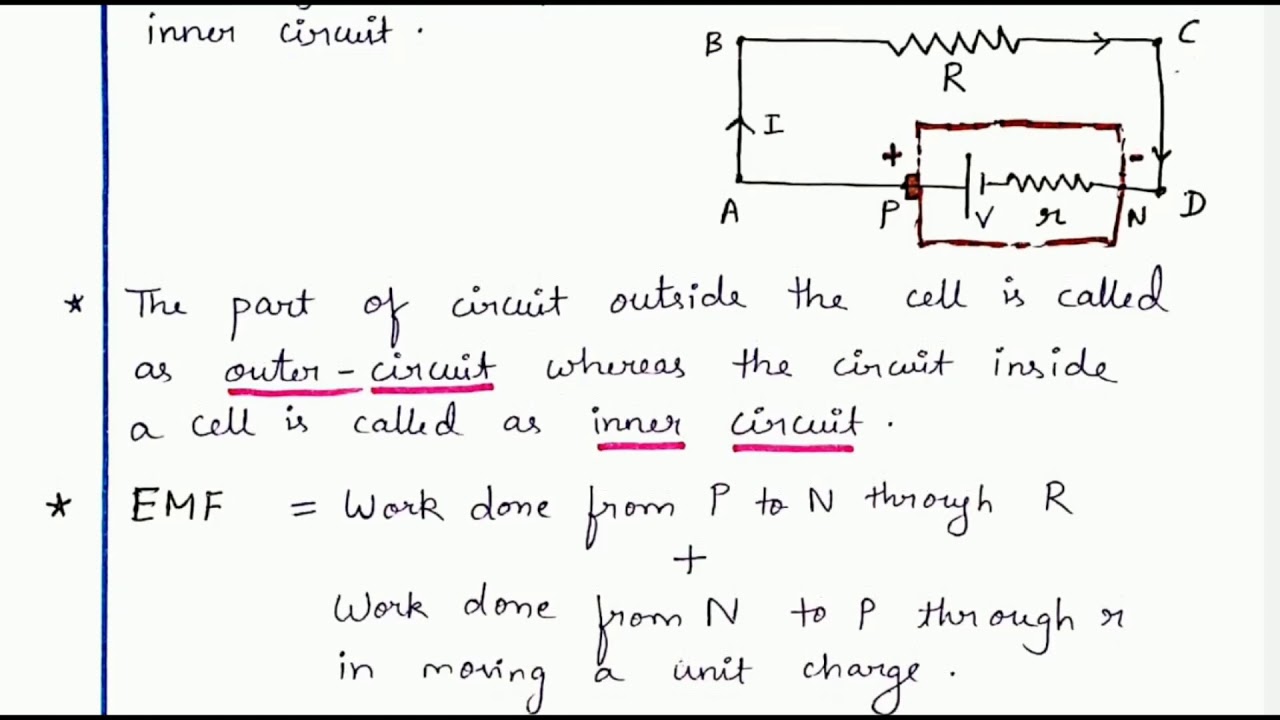 inner circuit.
B
C
R
I
+
-
A
P
V
r
N
D
* The part of circuit outside the cell is called
as outer-circuit whereas the circuit inside
a cell is called as inner circuit.
* EMF = Work done from P to N through R
+
Work done from N to P through r
in moving a unit charge.